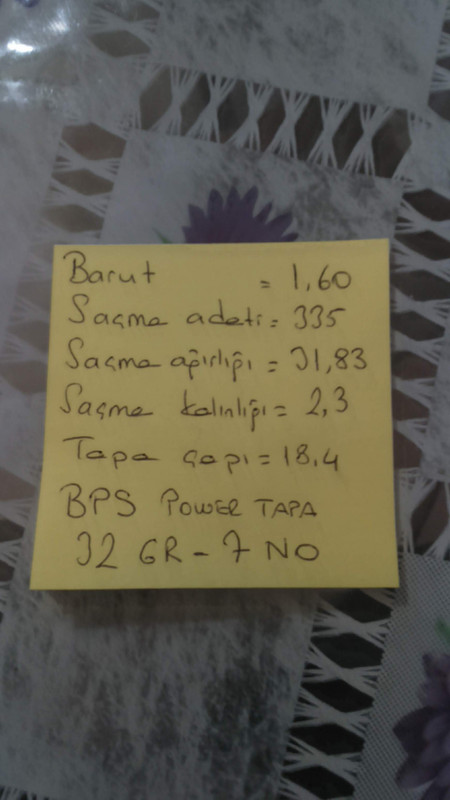 Barut = 1,60
Saçma adeti = 335
Saçma ağırlığı = 31,83
Saçma kalınlığı = 2,3
Tapa çapı = 18,4
BPS POWER TAPA
32 GR - 7 NO